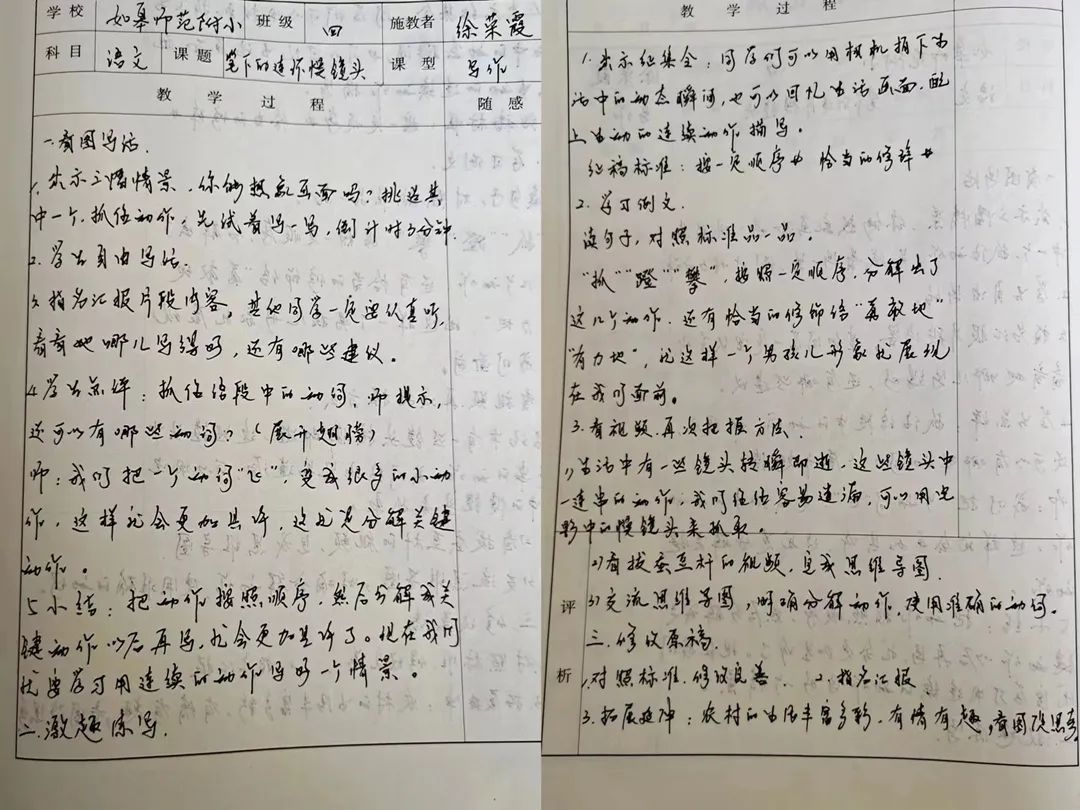 学校 如皋师范附小 班级 四 施教者 徐荣霞
科目 语文 课题 笔下的连环慢镜头 课型 写作
教学过程 随感
一.看图写话.
1.出示三幅情景,你能想象画面吗?挑选其
中一个,抓住动作,先试着写一写,倒计时5分钟.
2.学生自由写话.
3.指名汇报片段内容,其他同学一定要认真听,
看看她哪儿写得好,还有哪些建议。
4.学生点评:抓住语段中的动词,师提示,
还可以有哪些动词?(展开翅膀)
师:我们把一个动词“飞”,变成很多的小动
作,这样就会更加具体,这就是分解关键
动作。
5.小结:把动作按照顺序,然后分解成关
键动作以后再写,就会更加具体了。现在我们
就要学习用连续的动作写好一个情景。
二.激趣练写.
教学过程
1.出示征集令:同学们可以用相机拍下生
活中的动态瞬间,也可以回忆生活画面,配
上生动的连续动作描写。
征稿标准:按一定顺序 恰当的修辞
2.学习例文.
读句子,对照标准品一品.
“抓”“蹬”“攀”,按照一定顺序,分解出了
这几个动作.还有恰当的修饰语“勇敢地”
“有力地”,就这样一个男孩儿形象就展现
在我们面前。
3.看视频,再次把握方法.
1)生活中有一些镜头转瞬即逝,这些镜头中
一连串的动作,我们往往容易遗漏,可以用电
影中的慢镜头来抓取。
2)看拔蚕豆秆的视频,完成思维导图.
3)交流思维导图,明确分解动作,使用准确的动词.
三.修改原稿.
1.对照标准,修改完善. 2.指名汇报
3.拓展延伸:农村的生活丰富多彩,有情有趣,看图说思考.
评析